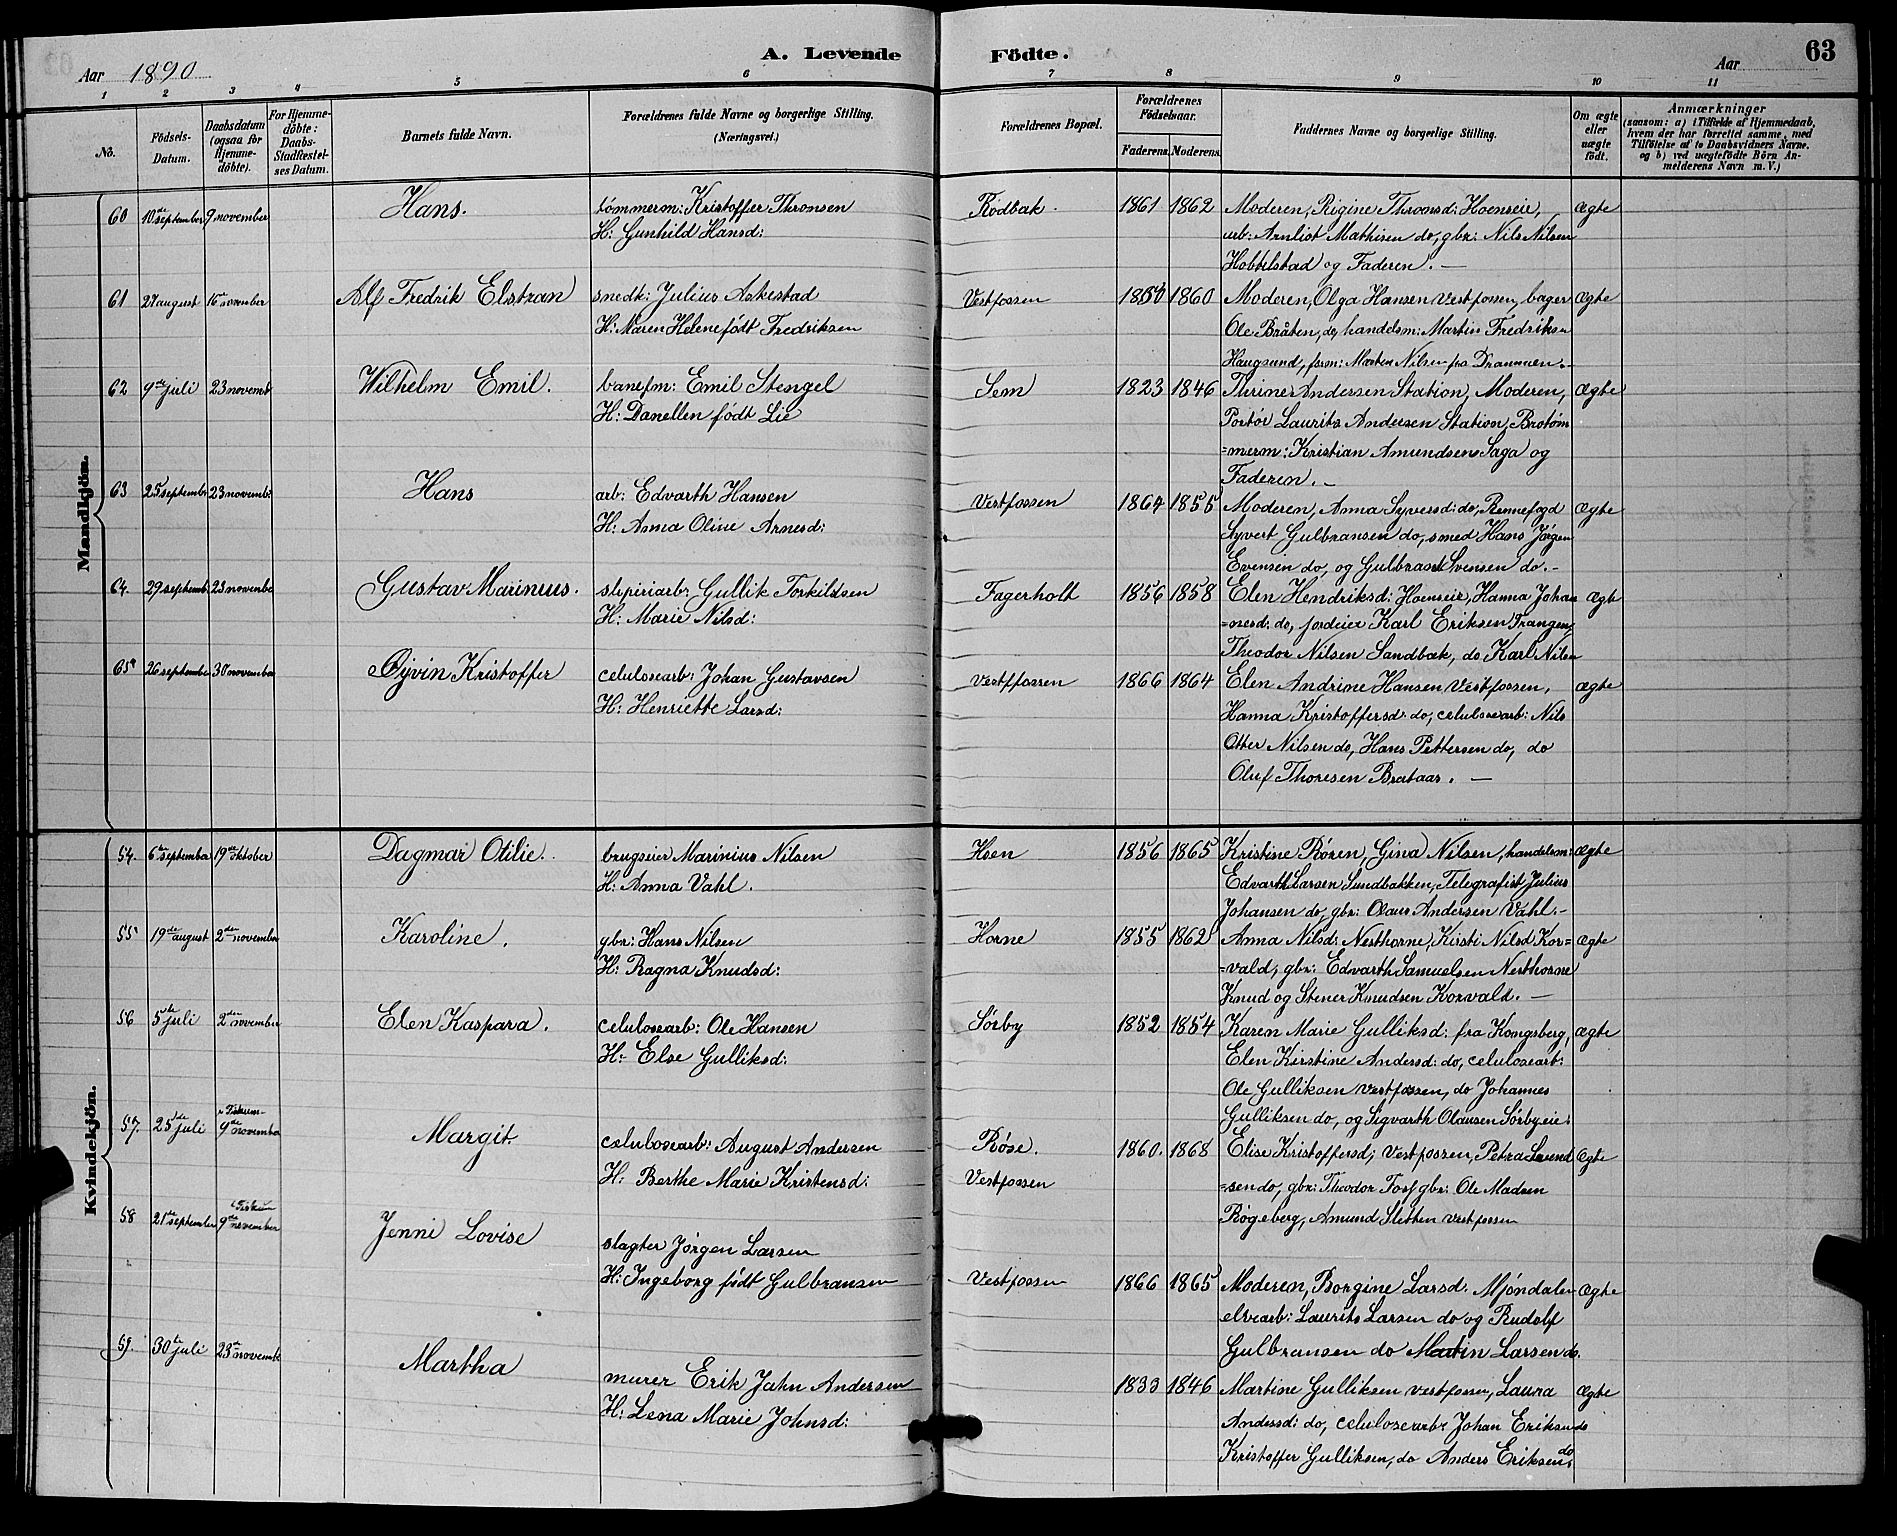 A. Levende Födte. 63
Aar 1890 Aar
1 2 3 4 5 6 7 8 9 10 11
No.
Födsels-
Datum.
Daabsdatum
(ogsaa for
Hjemme-
döbte).
For Hjemme-
döbte:
Daabs-
Stadfæstel-
ses Datum.
Barnets fulde Navn.
Forældrenes fulde Navne og borgerlige Stilling.
(Næringsvei.)
Forældrenes Bopæl.
Forældrenes
Födselsaar.
Faderens. Moderens.
Faddernes Navne og borgerlige Stilling.
Om ægte
eller
uægte
födt.
Anmærkninger
(saasom: a) i Tilfælde af Hjemmedaab,
hvem der har forrettet samme, med
Tilföielse af to Daabsvidners Navne.
og b) ved uægtefödte Börn An-
melderens Navn m. V.)
Mandkjön.
60 10de september 9 november Hans. tømmerm: Kristoffer Thronsen Rødbak. 1861 1862 Moderen, Rigine Thronsd: Hoenseie, ægte
H: Gunhild Hansd: arb: Arnliot Mathisen do, gbr: Nils Nilsen
Hobbelstad og Faderen. —
61 27 august 16 november Alf Fredrik Elstran snedk: Julius Askestad Vestfossen 1850 1860 Moderen, Olga Hansen Vestfossen, bager ægte
H: Maren Helene født Fredriksen Ole Bråten, do, handelsm: Martin Fredriksen
Haugsund, form: Morten Nilsen fra Drammen. -
62 9de juli 23 novemb Wilhelm Emil. banefm: Emil Stengel Sem 1823 1846 Thrine Andersen Station, Moderen, ægte
H: Danellen født Lie Portør Laurits Andersen Station, Brotøm
=merm: Kristian Amundsen Saga og
Faderen. —
63 25 septembe 23 novemb: Hans arb: Edvarth Hansen Vestfossen 1864 1855 Moderen, Anna Syversd: do, Rennefogd ægte
H: Anna Oline Arnesd: Syvert Gulbransen do, smed Hans Jørgen
Evensen do, og Gulbrand Svensen do. -
64. 29 septemb 23 novembe Gustav Marinius. slipiriarb: Gullik Torkildsen Fagerholt 1856 1858 Elen Hendriksd: Hoenseie, Hanna Johan ægte
H: Marie Nilsd: =nesd: do, jordeier Karl Eriksen Trangen,
Theodor Nilsen Sandbæk, do Karl Nilsen
65 26 september 30 november Øyvin Kristoffer celulosearb: Johan Gustavsen Vestffossen 1866 1864 Elen Andrine Hansen Vestfossen, ægte
H: Henriette Larsd: Hanna Kristoffersd: do, celulosearb: Nils
Otter Nilsen do, Hans Pettersen do, do
Oluf Thoresen Brataas. —
Kvindekjön.
54. 6te september 19de oktober Dagmar Otilie. brugseier Marinius Nilsen Hoen 1856 1865 Kristine Røren, Gina Nilsen, handelsm: ægte
H: Anna Vahl. Edvarth Larsen Sundbakken, Telegrafist Julius
Johansen do, gbr: Olaus Andersen Vahl. -
55 19de august 2den november Karoline. gbr: Hans Nilsen Horne 1855 1862 Anna Nilsd: Nesthorne, Kirsti Nilsd Kor= ægte
H: Ragna Knudsd: =vald, gbr: Edvarth Samuelsen Nesthorne
Knud og Stener Knudsen Korvald. —
56 5te juli 2den november Elen Kaspara. celulosearb: Ole Hansen Sørby 1852 1854 Karen Marie Gulliksd: fra Kongsberg, ægte
H: Else Gulliksd: Elen Kirstine Andersd: do, celulosearb:
Ole Gulliksen Vestfossen, do Johannes
Gulliksen do, og Sigvarth Olausen Sørbyeie:
57. 25de juli Fiskum 9de november Margit celulosearb: August Andersen Røse. 1860. 1868 Elise Kristoffersd; Vestfossen, Petra ægte
H: Berthe Marie Kristensd: Vestfossen =sen do, gbr: Theodor Fos, gbr: Ole Madsen
Røgeberg, Amund Sletten Vestfossen
58 21de september Fiskum 9de november Jenni Lovise slagter Jørgen Larsen
H: Ingeborg født Gulbransen Vestfossen 1866 1865 Moderen, Borgine Larsd: Mjøndalen ægte
elvearb: Laurits Larsen do og Rudolf
Gulbransen do Martin Larsen do.
59. 30te juli 23de novemb Martha murer Erik Jahn Andersen 1833 1846 Martine Gulliksen Vestfossen, Laura ægte
H: Lena Marie Johnsd: Andersd: do, celulosearb: Johan Eriksen do
Kristoffer Gulliksen, do Anders Eriksen do.